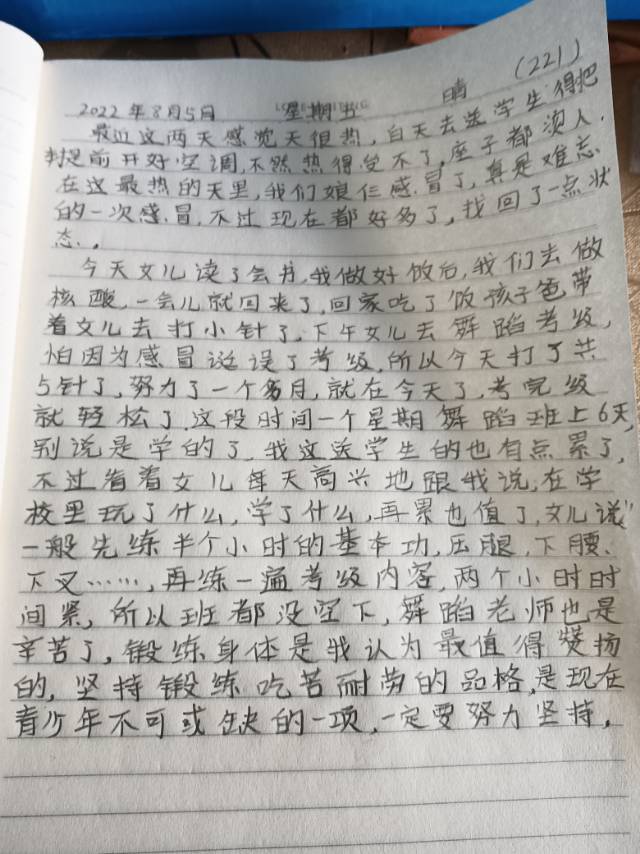 (221)
2022年8月5日 星期五 晴
最近这两天感觉天很热，白天去送学生得把
提前开好空调，不然热得受不了，座子都烫人，
在这最热的天里，我们娘仨感冒了，真是难忘
的一次感冒，不过现在都好多了，找回了一点状
态。
今天女儿读了会书，我做好饭后，我们去做
核酸，一会儿就回来了，回家吃了饭孩子爸带
着女儿去打小针了，下午女儿去舞蹈考级，
怕因为感冒诞误了考级，所以今天打了共
5针了，努力了一个多月，就在今天了，考完级
就轻松了，这段时间一个星期舞蹈班上6天，
别说是学的了，我这送学生的也有点累了，
不过看着女儿每天高兴地跟我说，在学
校里玩了什么，学了什么，再累也值了，女儿说"
一般先练半个小时的基本功，压腿，下腰、
下叉……，再练一遍考级内容，两个小时时
间紧，所以班都没空下，舞蹈老师也是
辛苦了，锻炼身体是我认为最值得赞扬
的，坚持锻炼吃苦耐劳的品格，是现在
青少年不可或缺的一项，一定要努力坚持，